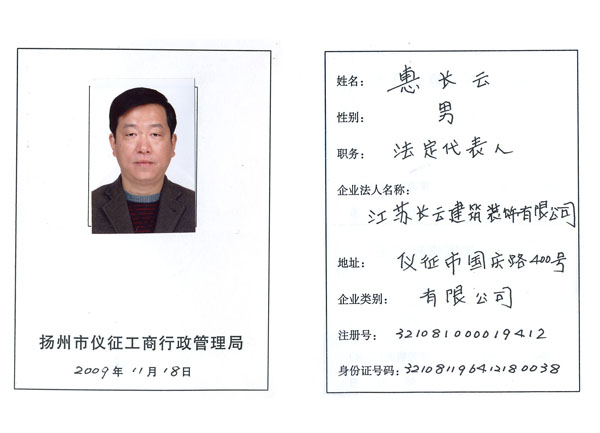 扬州市仪征工商行政管理局
2009年11月18日
姓名: 惠长云
性别: 男
职务: 法定代表人
企业法人名称:
江苏长云建筑装饰有限公司
地址: 仪征市国庆路400号
企业类别: 有限公司
注册号: 321081000019412
身份证号码: 321081196412180038